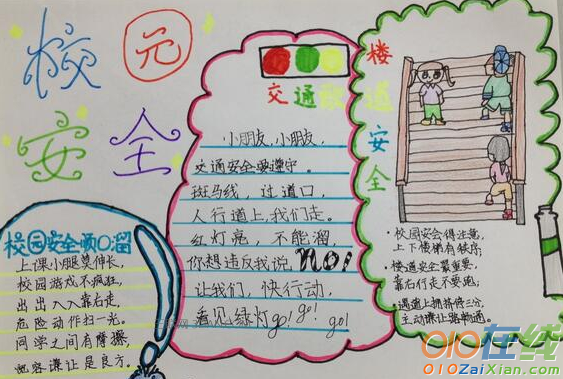 校园
安全
校园安全顺口溜
上课小腿莫伸长,
校园游戏不疯狂,
出出入入靠右走,
危险动作扫一光。
同学之间有摩擦,
宽容谦让是良方。
交通歌
小朋友,小朋友,
交通安全要遵守。
斑马线,过道口,
人行道上,我们走。
红灯亮,不能溜,
你想违反我说 NO!
让我们,快行动,
看见绿灯go! go! go!
楼道安全
·校园安会得注意,
上下楼梯有秩序;
·楼道安全最重要,
靠右行走不要跑;
·通道上拥挤倍三分,
主动谦让路畅通。
010在线
010ZaiXian.com